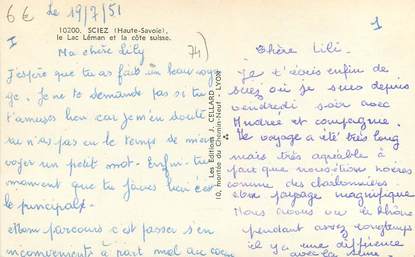 6€ Le 19/7/51
1
I
10200. SCIEZ (Haute-Savoie),
le Lac Léman et la côte suisse.
74)
Ma chère Lily
J'espère que tu as fait un beau voya
ge. Je ne te demande pas si tu
t'amuses bien car je m'en doute
tu n'as pas eu le temps de m'en
voyer un petit mot. Enfin, du
moment que tu
c'est
le principale.
Mon parcours c'est passer sans
inconvenients à part mal au coeur
Les Editions J. CELLARD
10, montée du Chemin-Neuf - LYON
Chère Lili.
Je t'écris enfin de
Sciez où je suis depuis
vendredi soir avec
Andrée et compagnie.
Le voyage a été très long
mais très agréable à
part que nous étions noires
comme des charbonniers
etre paysage magnifique
Nous avons vu le Rhône
pendant assez longtemps
il y a une différence
avec la Seine